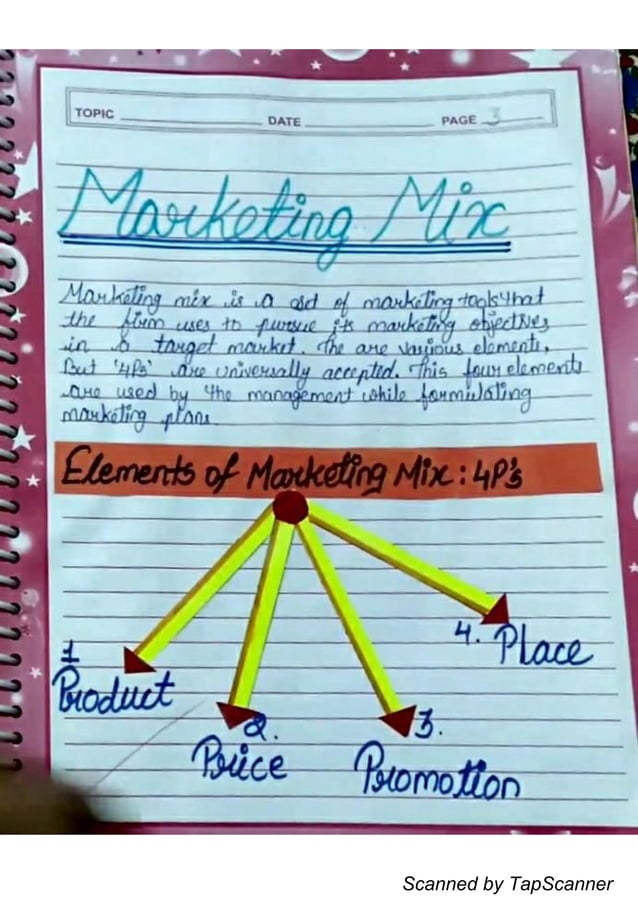 TOPIC DATE PAGE 3
Marketing Mix
Marketing mix is a set of marketing tools that
the firm uses to pursue its marketing objectives
in a target market. The are varyious elements,
But '4Ps' are universally accepted. This four elements
are used by the management while formulating
marketing plans.
Elements of Marketing Mix : 4P's
4. Place
1
Product
2.
Price
3.
Promotion
Scanned by TapScanner